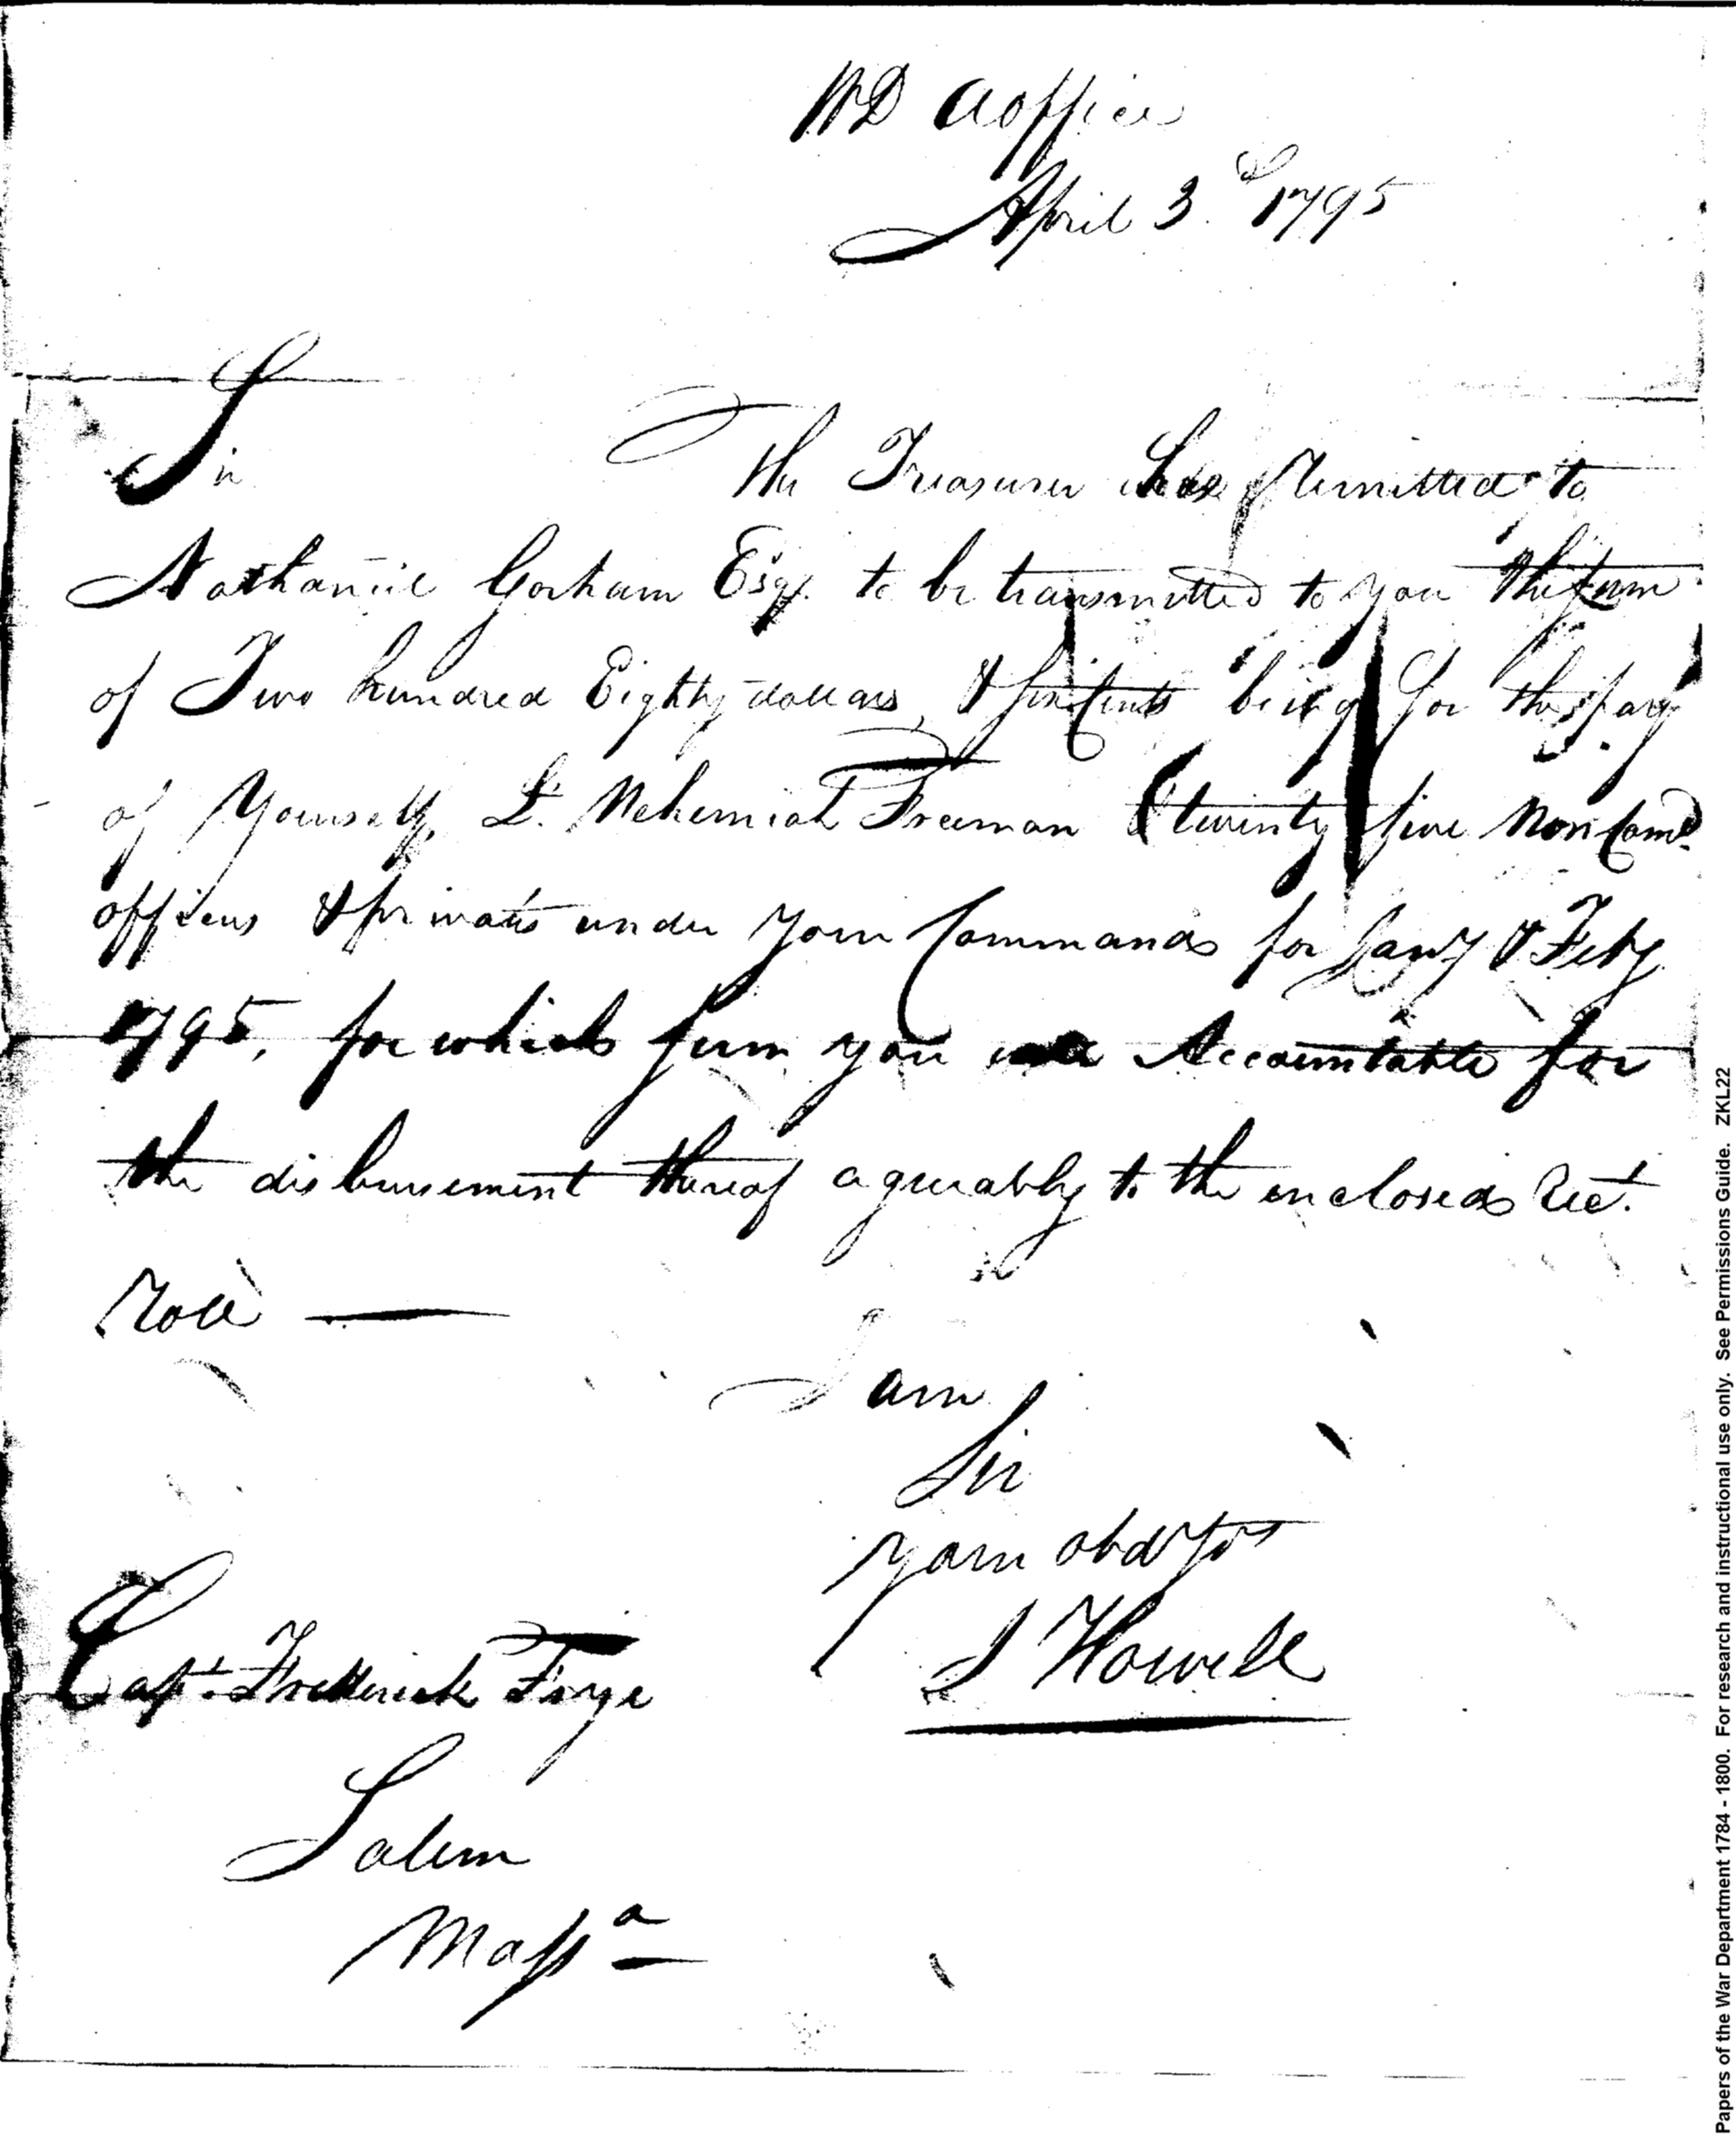 WD Aoffice
April 3.d 1795
Sir
The Treasurer has Remitted to
Nathaniel Gorham Esqr. to be transmitted to you the sum
of Two hundred Eighty dollars, & six Cents being for the pay
of Yourself, Lt. Nehemiah Freeman & twenty five Non Comd.
officers & privates under your Command for Jany & Feby
1795, for which sum you are Accountable for
the disbursement thereof agreeably to the enclosed Rect.
Roll —
I am
Sir
Your obd
J Howell
Capt. Frederick Frye
Salem
Massa
Papers of the War Department 1784 - 1800. For research and instructional use only. See Permissions Guide. ZKL22